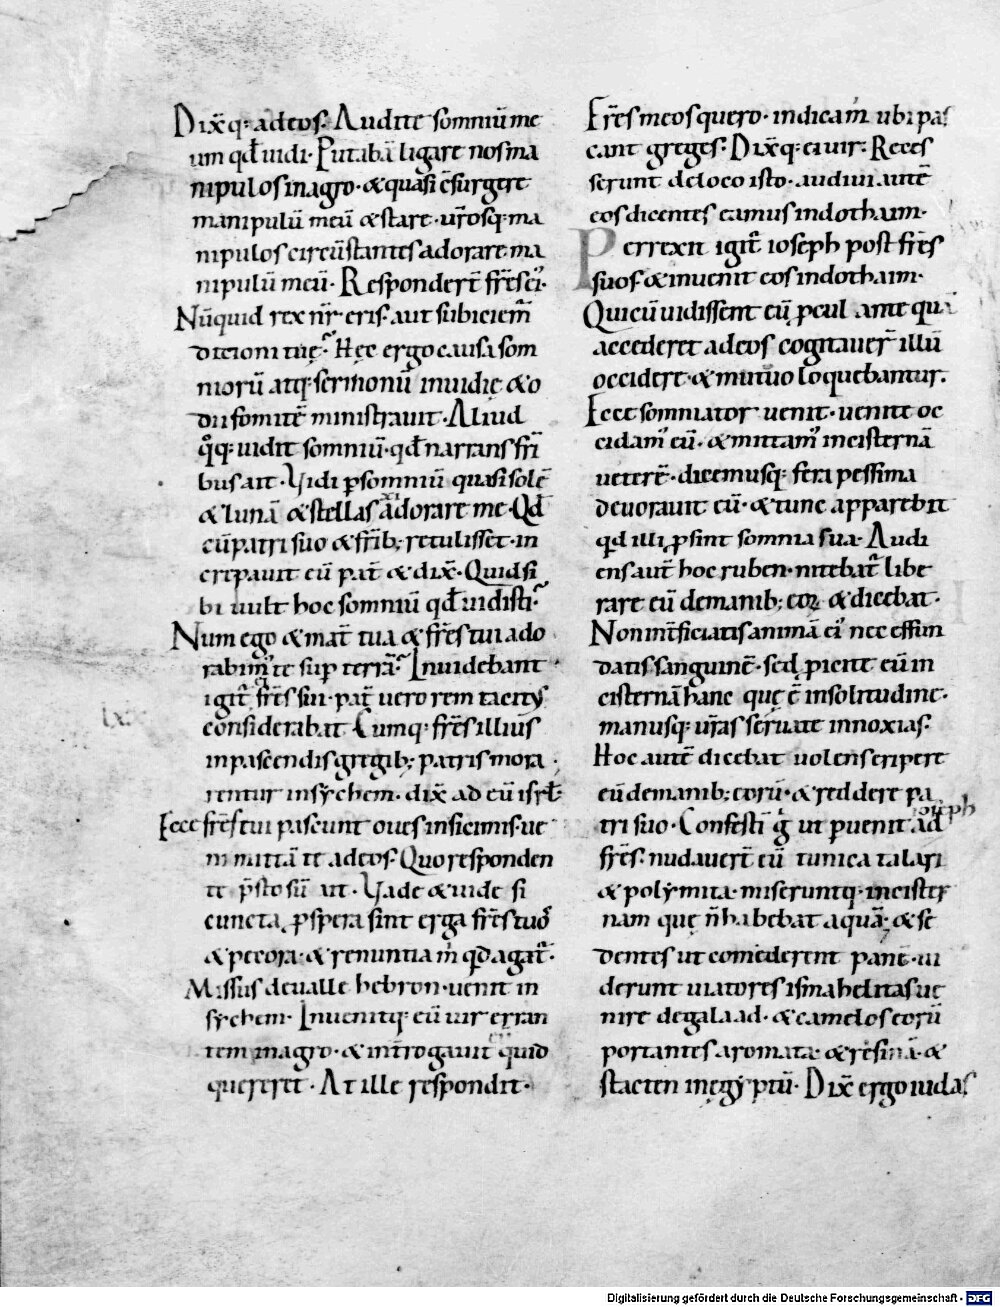 Dix̄q; ad eos. Audite somniū me
um qđ uidi. Putabā ligare nos ma
nipulos in agro. & quasi c̄surgere
manipulū meū & stare. ur̄osq; ma
nipulos circūstantes adorare ma
nipulū meū. Responderēt fr̄s ei.
Nūquid rex nr̄ eris. aut subiciem̄
dicioni tuę. Hęc ergo causa som
niorū atq; sermonū inuidię & o
dii fomitē ministrauit. Aliud
q̊q; uidit somniū. qđ narrans fri
bus ait. Vidi p somniū quasi solē
& lunā & stellas xi adorare me. Qđ
cū patri suo & frīb; retulisset. in
crepauit eū pat̄ & dix̄. Quid si
bi uult hoc somniū qđ uidisti.
Num ego & mat̄ tua & fr̄s tui ado
rabim᾿ te sup terrā. Inuidebant
igit᾿ ei fr̄s sui. pat̄ uero rem tacit᾿
considerabat. Cumq; fr̄s illius
in pascendis gregib; patris mora
rentur in sychem. dix̄ ad eū isrł
Ecce fr̄s tui pascunt oues in sicimis. ue
ni mittā te ad eos. Quo responden
te p̄sto sū ait. Vade & uide si
cuncta p̱spera sint erga fr̄s tuos
& pecora. & renuntia m̓ qd agat᾿.
Missus de ualle hebron. uenit in
sychem. Inuenitq; eū uir erran
tem in agro. & int̄rogauit quid
quereret. At ille respondit.
Fr̄s meos quero. indica m̓ ubi pas
cant greges. Dix̄q; ei uir. Reces
serunt de loco isto. audiui autē
eos dicentes eamus in dothaim.
Perrexit igit᾿ ioseph post fr̄s
suos & inuenit eos in dothaim.
Qui cū uidissent eū p̱cul ante quā
accederet ad eos cogitauer̄ illū
occidere. & mutuo loquebantur.
Ecce somniator uenit. uenite oc
cidam᾿ eū. & mittam᾿ in cisternā
ueterē. dicemusq; fera pessima
deuorauit eū. & tunc apparebit
qd illi p̱sint somnia sua. Audi
ens aut̄ hoc ruben. nitebat᾿ libe
rare eū de manib; eoꝝ & dicebat.
Non int̄ficiatis animā ei᾿ nec effun
datis sanguinē. sed p̱icite eū in
cisternā hanc quę ē in solitudine.
manusq; ur̄as seruate innoxias.
Hoc autē dicebat uolens eripere
eū de manib; eorū. & reddere pa
tri suo. Confestī g̊ ut p̱uenit ioseph ad
fr̄s. nudauert̄ eū tunica talari
& polymita. miseruntq; in cister
nam quę n̄ habebat aquā. & se
dentes ut comederent panē. ui
derunt uiatores ismahelitas ue
nire de galaad. & camelos eorū
portantes aromata & resinā. &
stacten in ęgyptū. Dix̄ ergo iudas
lxix
Digitalisierung gefördert durch die Deutsche Forschungsgemeinschaft - DFG